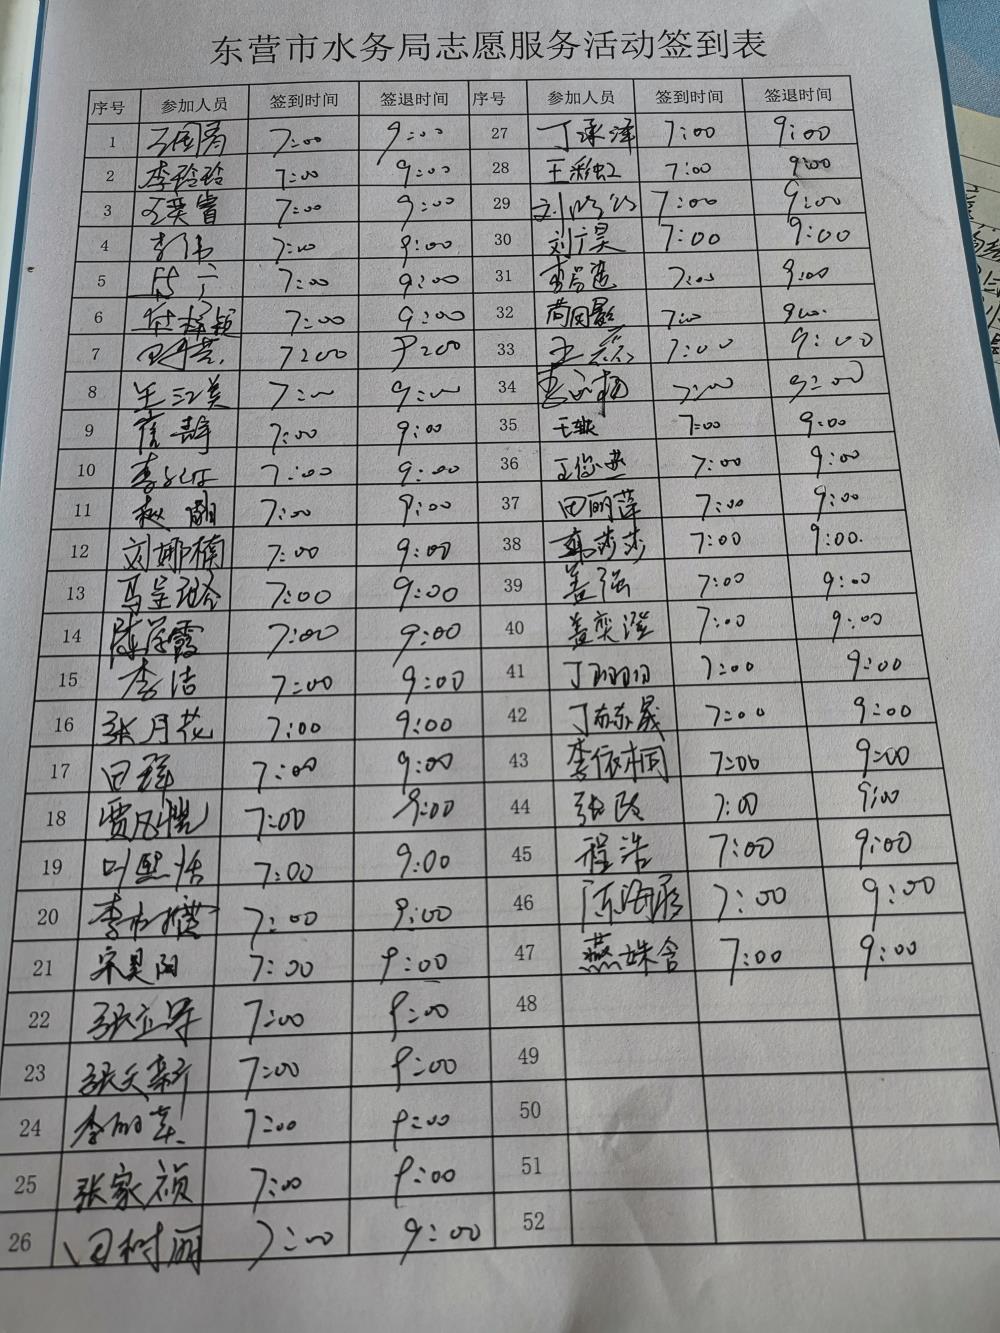 东营市水务局志愿服务活动签到表
序号 参加人员 签到时间 签退时间 序号 参加人员 签到时间 签退时间
1 7:00 9:00 27 丁承泽 7:00 9:00
2 李玲玲 7:00 9:00 28 王彩虹 7:00 9:00
3 7:00 9:00 29 7:00 9:00
4 李伟 7:00 9:00 30 刘广昊 7:00 9:00
5 7:00 9:00 31 7:00 9:00
6 7:00 9:00 32 7:00 9:00.
7 7:00 9:00 33 王磊 7:00 9:00
8 7:00 9:00 34 7:00 9:00
9 7:00 9:00 35 7:00 9:00
10 7:00 9:00 36 7:00 9:00
11 7:00 9:00 37 田丽萍 7:00 9:00
12 刘娜楠 7:00 9:00 38 莎莎 7:00 9:00.
13 7:00 9:00 39 盖强 7:00 9:00
14 陈学霞 7:00 9:00 40 盖奕澄 7:00 9:00
15 李洁 7:00 9:00 41 7:00 9:00
16 张月花 7:00 9:00 42 7:00 9:00
17 7:00 9:00 43 李依桐 7:00 9:00
18 7:00 9:00 44 7:00 9:00
19 叶熙恬 7:00 9:00 45 程浩 7:00 9:00
20 7:00 9:00 46 7:00 9:00
21 宋昊阳 7:00 9:00 47 燕姝含 7:00 9:00
22 7:00 9:00 48
23 7:00 9:00 49
24 7:00 9:00 50
25 张家祯 7:00 9:00 51
26 田树丽 7:00 9:00 52